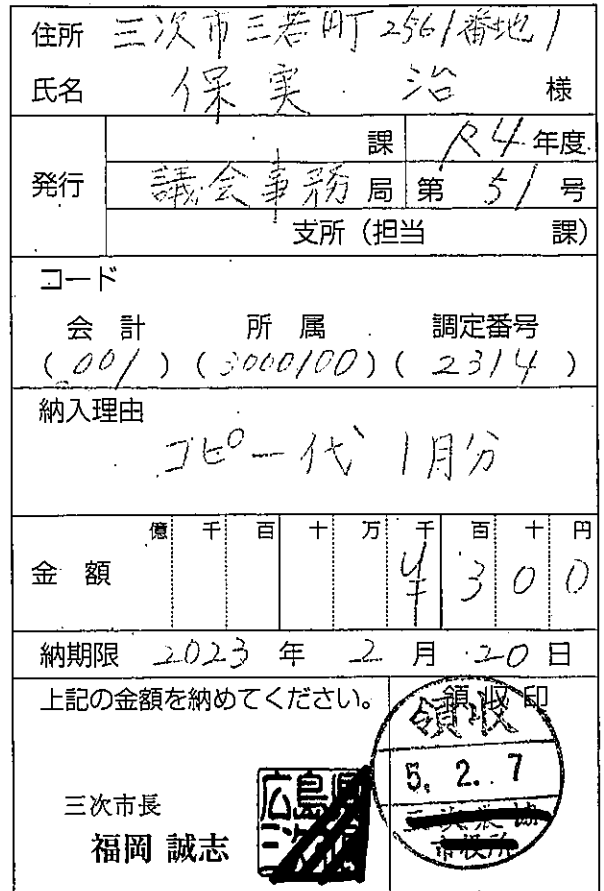 住所 三次市三若町2561番地1
氏名 保実 治 様
発行 課 R4年度
議会事務局 第 51 号
支所（担当 課）
コード
会計 所属 調定番号
(001) (3000100) (2314)
納入理由
コピー代 1月分
億 千 百 十 万 千 百 十 円
金額 ¥300
納期限 2023年2月20日
上記の金額を納めてください。 領収印
領収
5. 2. 7
三次市長
福岡 誠志